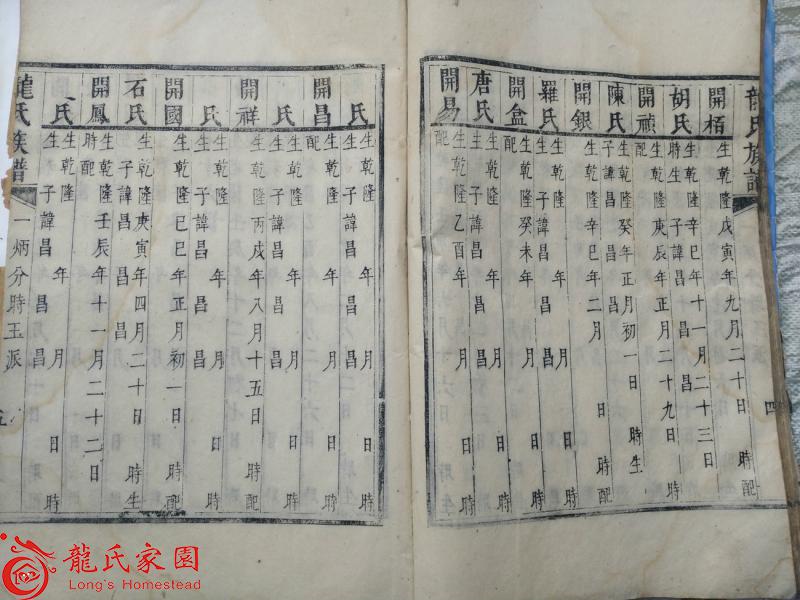 龍氏族譜
四
開栢 生乾隆戊寅年九月二十日 時配
胡氏 生乾隆辛巳年十一月二十三日時生 子諱昌 昌
開禎 生乾隆庚辰年正月二十九日 時配
陳氏 生乾隆癸 年正月初一日 時生 子諱昌 昌
開銀 生乾隆辛巳年二月 日 時配
羅氏 生乾隆 年 月 日 時 子諱昌 昌
開盒 生乾隆癸未年 月 日 時配
唐氏 生乾隆 年 月 日 時 子諱昌 昌
開易 生乾隆乙酉年 月 日 時配
氏 生乾隆 年 月 日 時 子諱昌 昌
開昌 生乾隆 年 月 日 時配
氏 生乾隆 年 月 日 時 子諱昌 昌
開祥 生乾隆丙戌年八月十五日 時配
氏 生乾隆 年 月 日 時 子諱昌 昌
開國 生乾隆 巳年正月初一日 時配
石氏 生乾隆庚寅年四月二十日 時生 子諱昌 昌
開鳳 生乾隆壬辰年十一月二十二日 時配
氏 生乾隆 年 月 日 時 子諱昌 昌
龍氏族譜
一炳分時玉派
五
龍氏家園
Long's Homestead